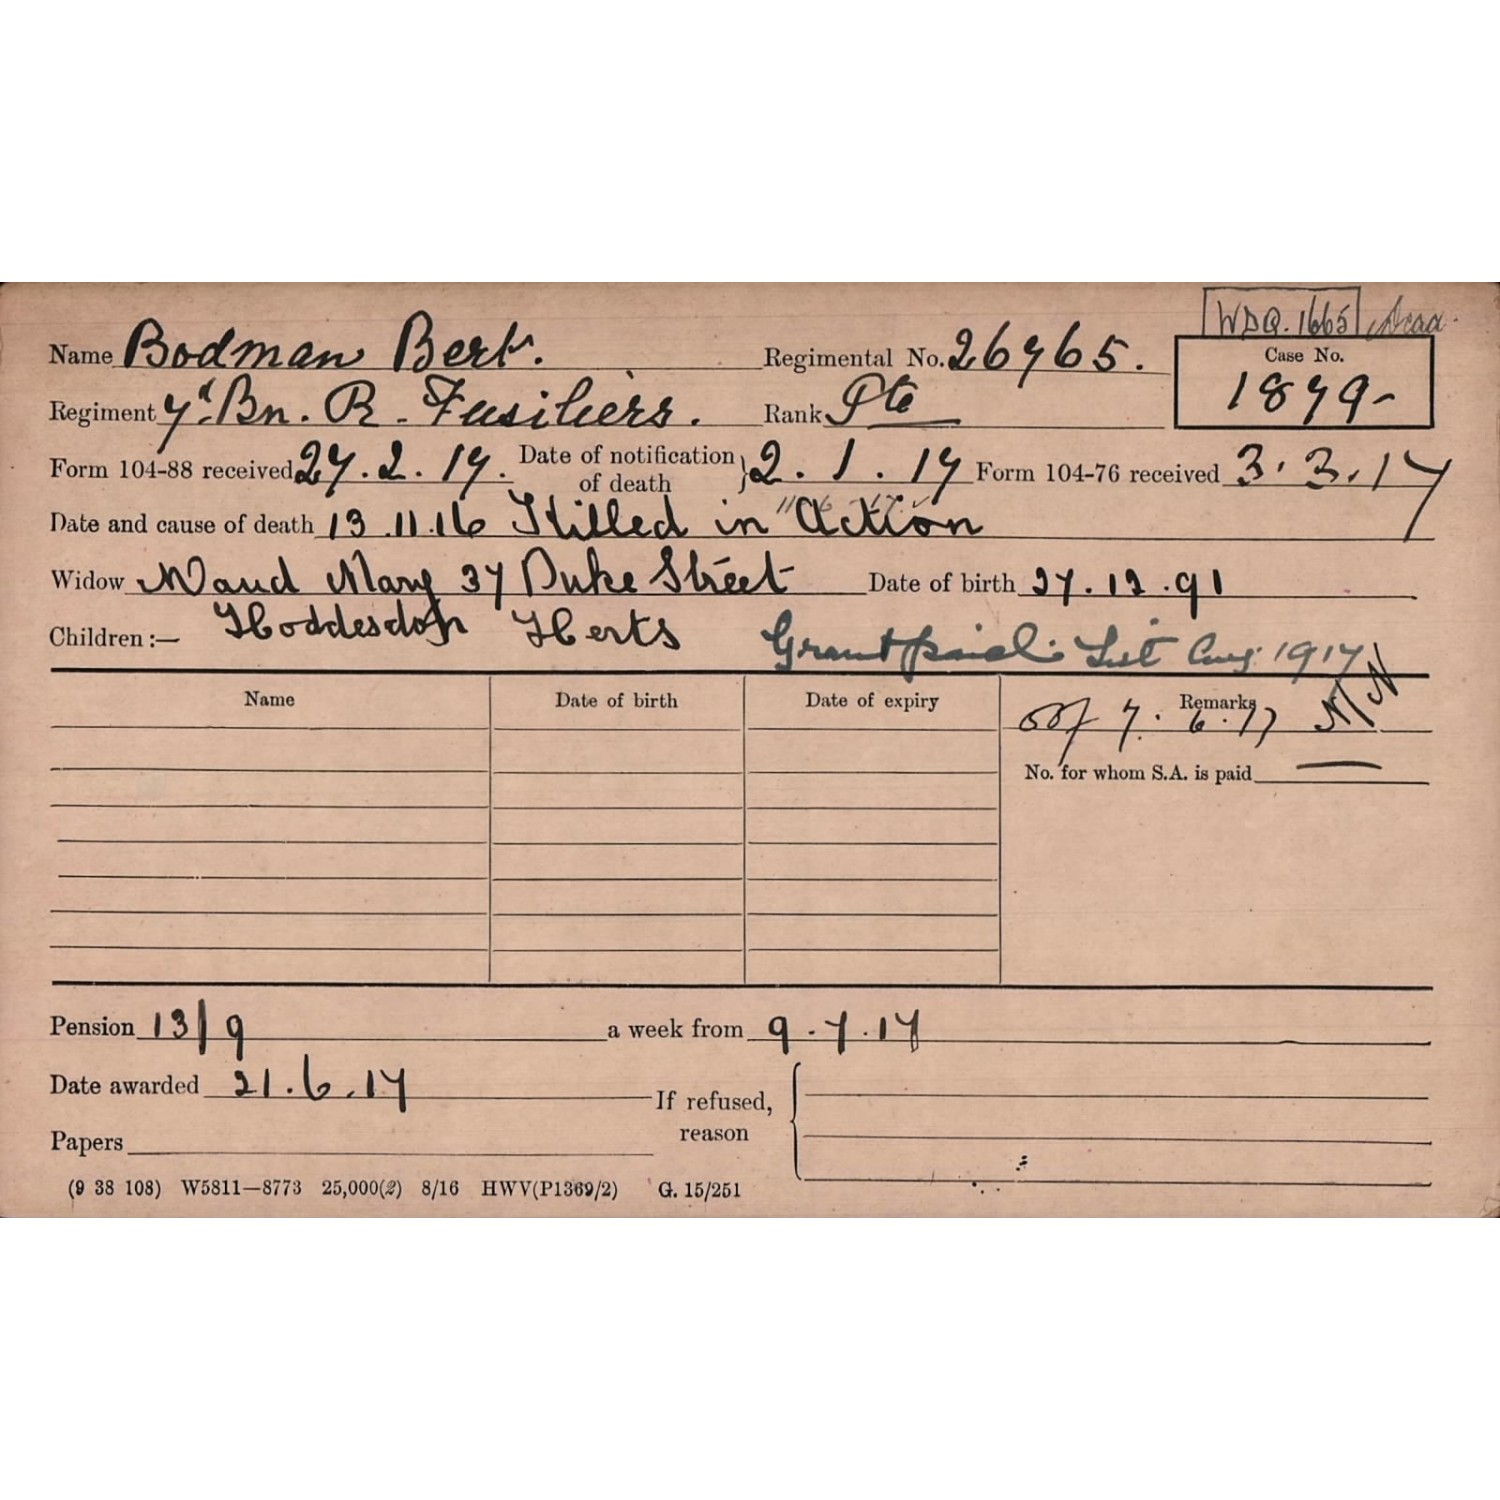 WDQ. 1665 Dead.
Name Bodman Bert. Regimental No. 26765. Case No.
1879-
Regiment 7th Bn. R. Fusiliers. Rank Pte
Form 104-88 received 27.2.17. Date of notification of death } 2.1.17 Form 104-76 received 3.3.17
Date and cause of death 13.11.16 Killed in "Action
Widow Maud Mary 37 Duke Street Date of birth 27.12.91
Children:— Hoddesdon Herts Grant paid. List Aug. 1917
Name Date of birth Date of expiry Remarks
7.6.17
No. for whom S.A. is paid —
Pension 13/9 a week from 9.7.17
Date awarded 21.6.17 If refused, reason
Papers
(9 38 108) W5811—8773 25,000(2) 8/16 HWV(P1369/2) G. 15/251